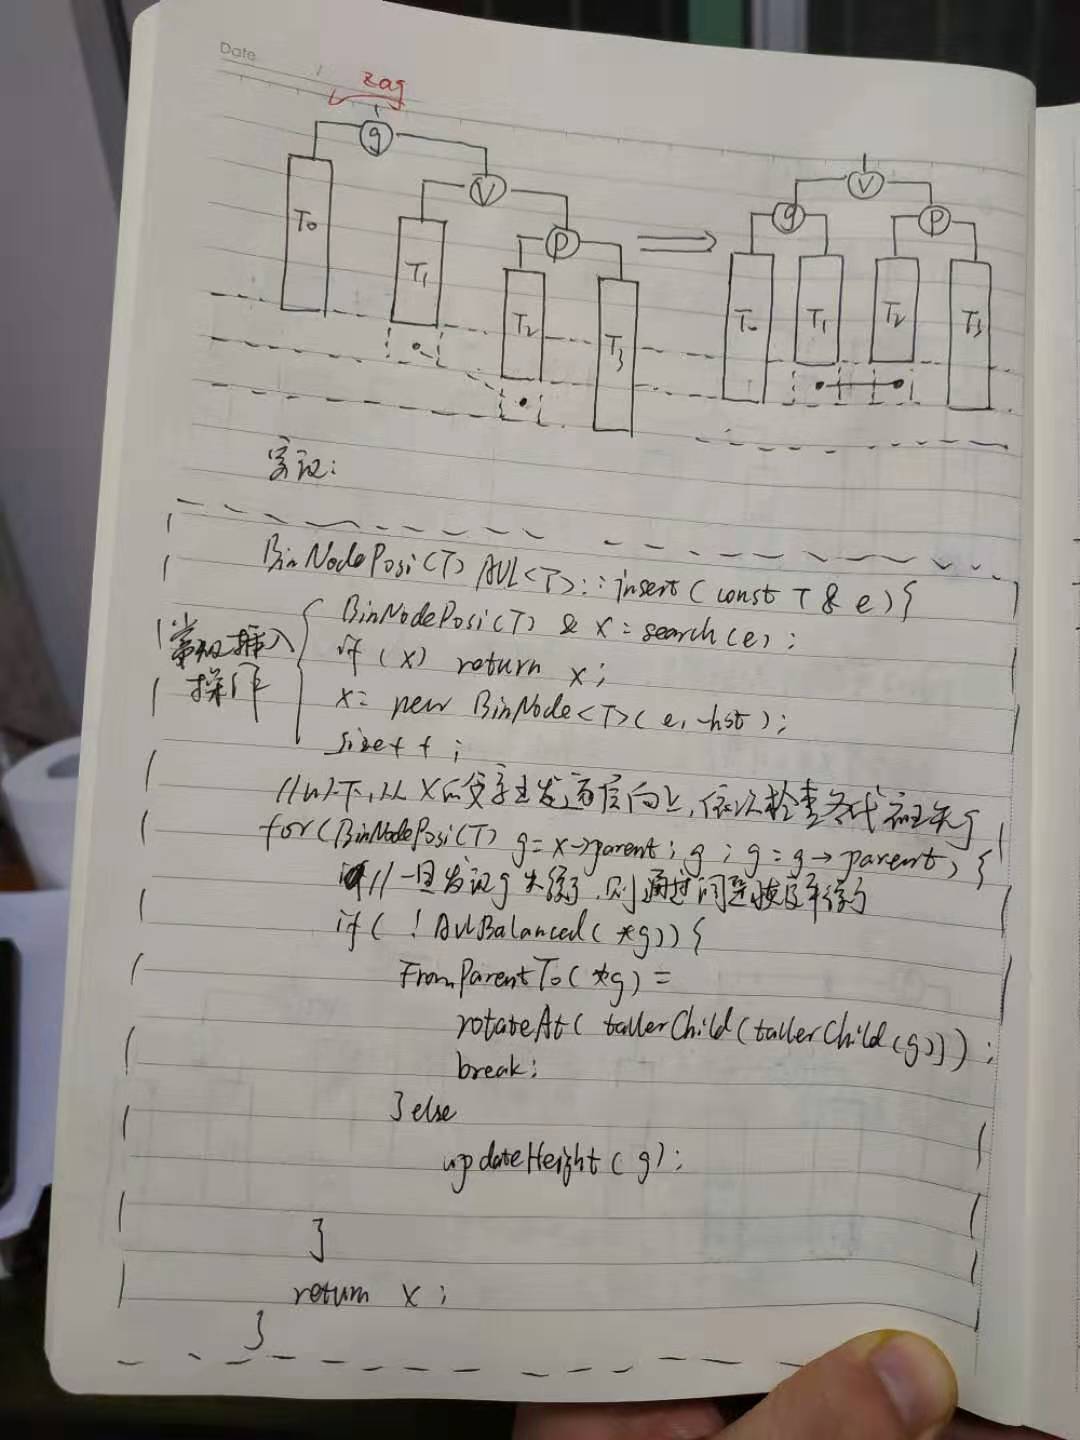 Date
zag
g
V
P
T0
T1
T2
T3
V
g
P
T0
T1
T2
T3
实现:
BinNodePosi(T) AVL<T>::insert(const T & e){
常规插入
操作
BinNodePosi(T) & x = search(e);
if (x) return x;
x = new BinNode<T>(e, _hot);
size++;
//以下,从x的父亲出发逐层向上,依次检查各代祖先g
for(BinNodePosi(T) g=x->parent; g; g=g->parent){
//一旦发现g失衡了,则通过调整恢复平衡
if( !AvlBalanced(*g)){
FromParentTo(*g) =
rotateAt( tallerChild(tallerChild(g)));
break;
}else
updateHeight(g);
}
return x;
}